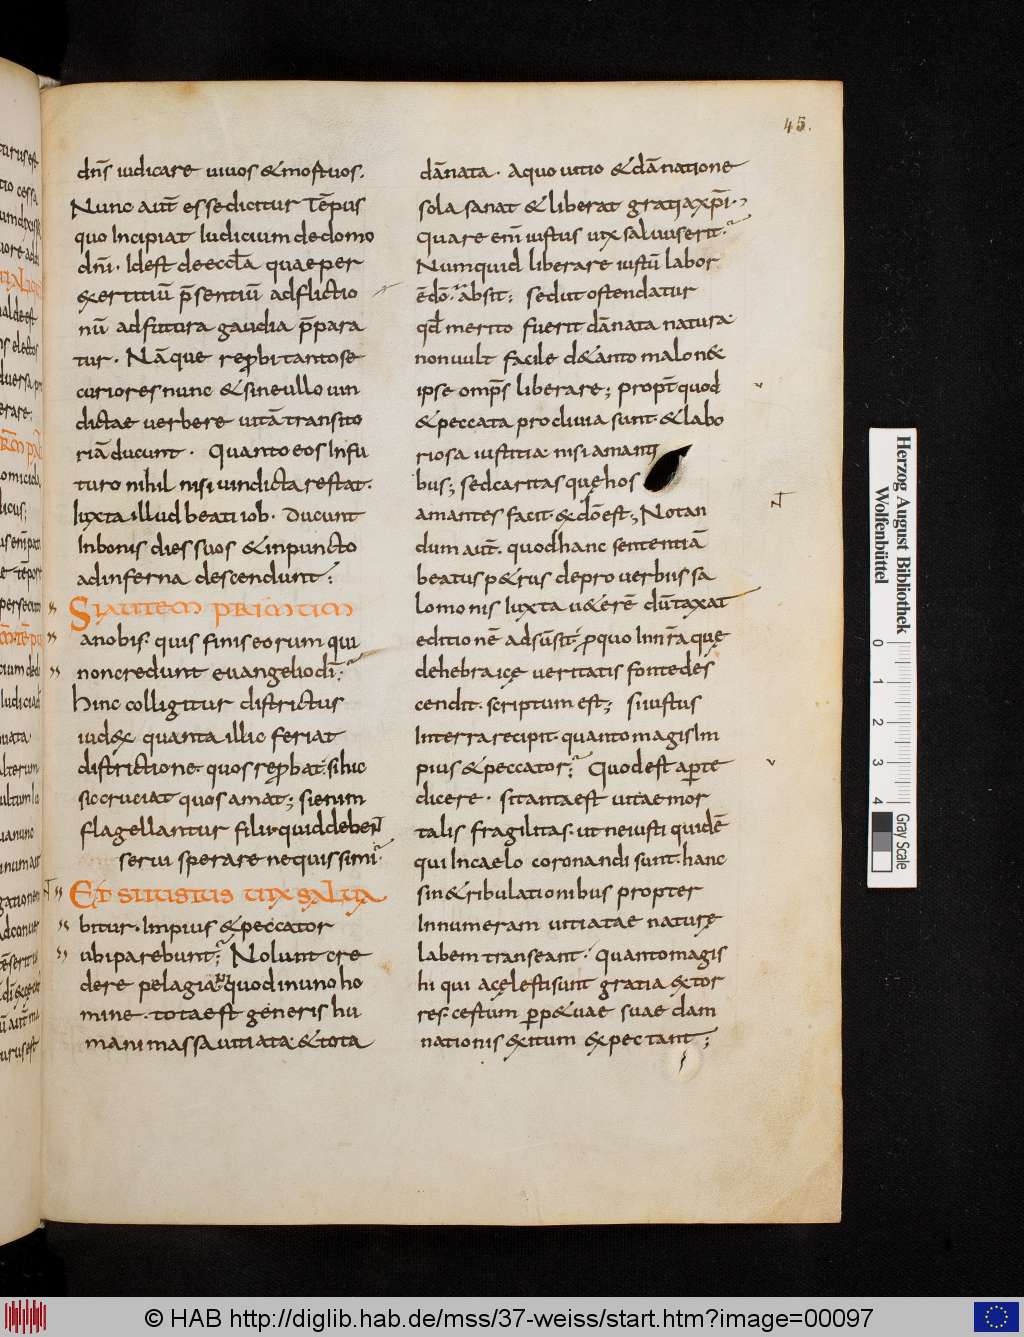 45.
dn̄s iudicare uiuos & mortuos.
Nunc aut̄ esse dicitur tēpus
quo Incipiat Iudicium de domo
dn̄i. Id est de eccl̄a quae per
exertitiū p̄sentiū adflictio
nū ad futura gaudia p̄para
tur. Nāque reprobi tanto se
curiores nunc & sine ullo uin
dictae uerbere uitā transito
riā ducunt. Quanto eos In fu
turo nihil nisi uindicta restat.
Iuxta illud beati iob. Ducunt
In bonis dies suos & in puncto
ad inferna descendunt;
Si autem primum
a nobis. quis finis eorum qui
non credunt euangelio dī;
Hinc colligitur districtus
iudex quanta illic feriat
districtione. quos reprobat. si hic
sic cruciat quos amat; si enim
flagellantur filii. quid debent
serui sperare nequissimi.
Et si iustus uix salua
bitur. Impius & peccator
ubi parebunt; Nolunt cre
dere pelagiani quod in uno ho
mine. tota est generis hu
mani massa uitiata. & tota
dānata. a quo uitio & dānatione
sola sanat & liberat gratia xp̄i.
Quare enī iustus uix saluus erit.
Numquid liberare iustū labor
ē dō. absit; sed ut ostendatur
qd̄ merito fuerit dānata natura
non uult facile de tanto malo n&
ipse omp̄s liberare; propt̄ quod
& peccata procliuia sunt. & labo
riosa iustitia nisi amanti
bus; sed caritas quę hos
amantes facit. ex dō est; Notan
dum aut̄. quod hanc sententiā
beatus p&rus de prouerbiis sa
lomonis Iuxta u&erē dūtaxat
editionē adsūsit. pro quo In nr̄a quę
de hebraicę ueritatis fonte des
cendit. scriptum est; si iustus
In terra recipit. quanto magis Im
pius & peccator; Quod est aperte
dicere. si tanta est uitae mor
talis fragilitas. ut ne iusti quidē
qui In caelo coronandi sunt. hanc
sine tribulationibus propter
Innumeram uitiatae naturę
labem transeant. Quanto magis
hi qui a cęlesti sunt gratia extor
res. certum perp&uae suae dam
nationis exitum expectant;
Herzog August Bibliothek
Wolfenbüttel
0 1 2 3 4
Gray Scale
© HAB http://diglib.hab.de/mss/37-weiss/start.htm?image=00097